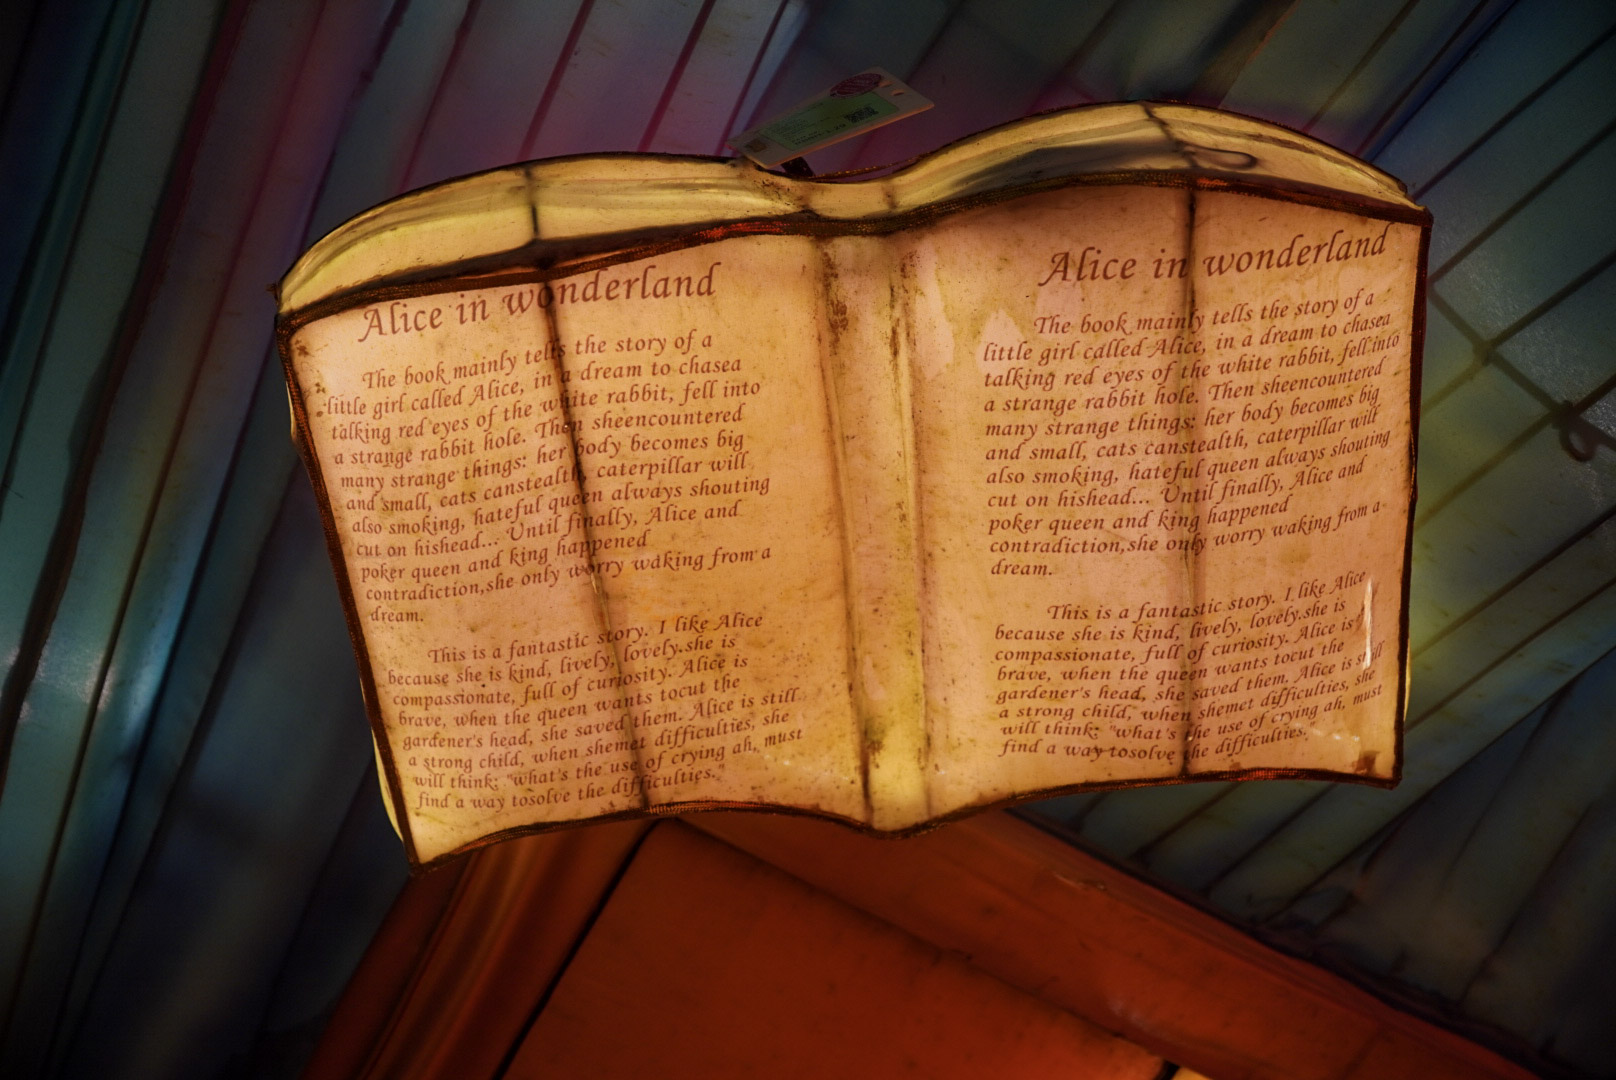 Alice in wonderland
The book mainly tells the story of a
little girl called Alice, in a dream to chasea
talking red eyes of the white rabbit, fell into
a strange rabbit hole. Then sheencountered
many strange things: her body becomes big
and small, cats canstealth, caterpillar will
also smoking, hateful queen always shouting
cut on hishead... Until finally, Alice and
poker queen and king happened
contradiction,she only worry waking from a
dream.
This is a fantastic story. I like Alice
because she is kind, lively, lovely.she is
compassionate, full of curiosity. Alice is
brave, when the queen wants tocut the
gardener's head, she saved them. Alice is still
a strong child, when shemet difficulties, she
will think: "what's the use of crying ah, must
find a way tosolve the difficulties."
Alice in wonderland
The book mainly tells the story of a
little girl called Alice, in a dream to chasea
talking red eyes of the white rabbit, fell into
a strange rabbit hole. Then sheencountered
many strange things: her body becomes big
and small, cats canstealth, caterpillar will
also smoking, hateful queen always shouting
cut on hishead... Until finally, Alice and
poker queen and king happened
contradiction,she only worry waking from a
dream.
This is a fantastic story. I like Alice
because she is kind, lively, lovely.she is
compassionate, full of curiosity. Alice is
brave, when the queen wants tocut the
gardener's head, she saved them. Alice is still
a strong child, when shemet difficulties, she
will think: "what's the use of crying ah, must
find a way tosolve the difficulties."